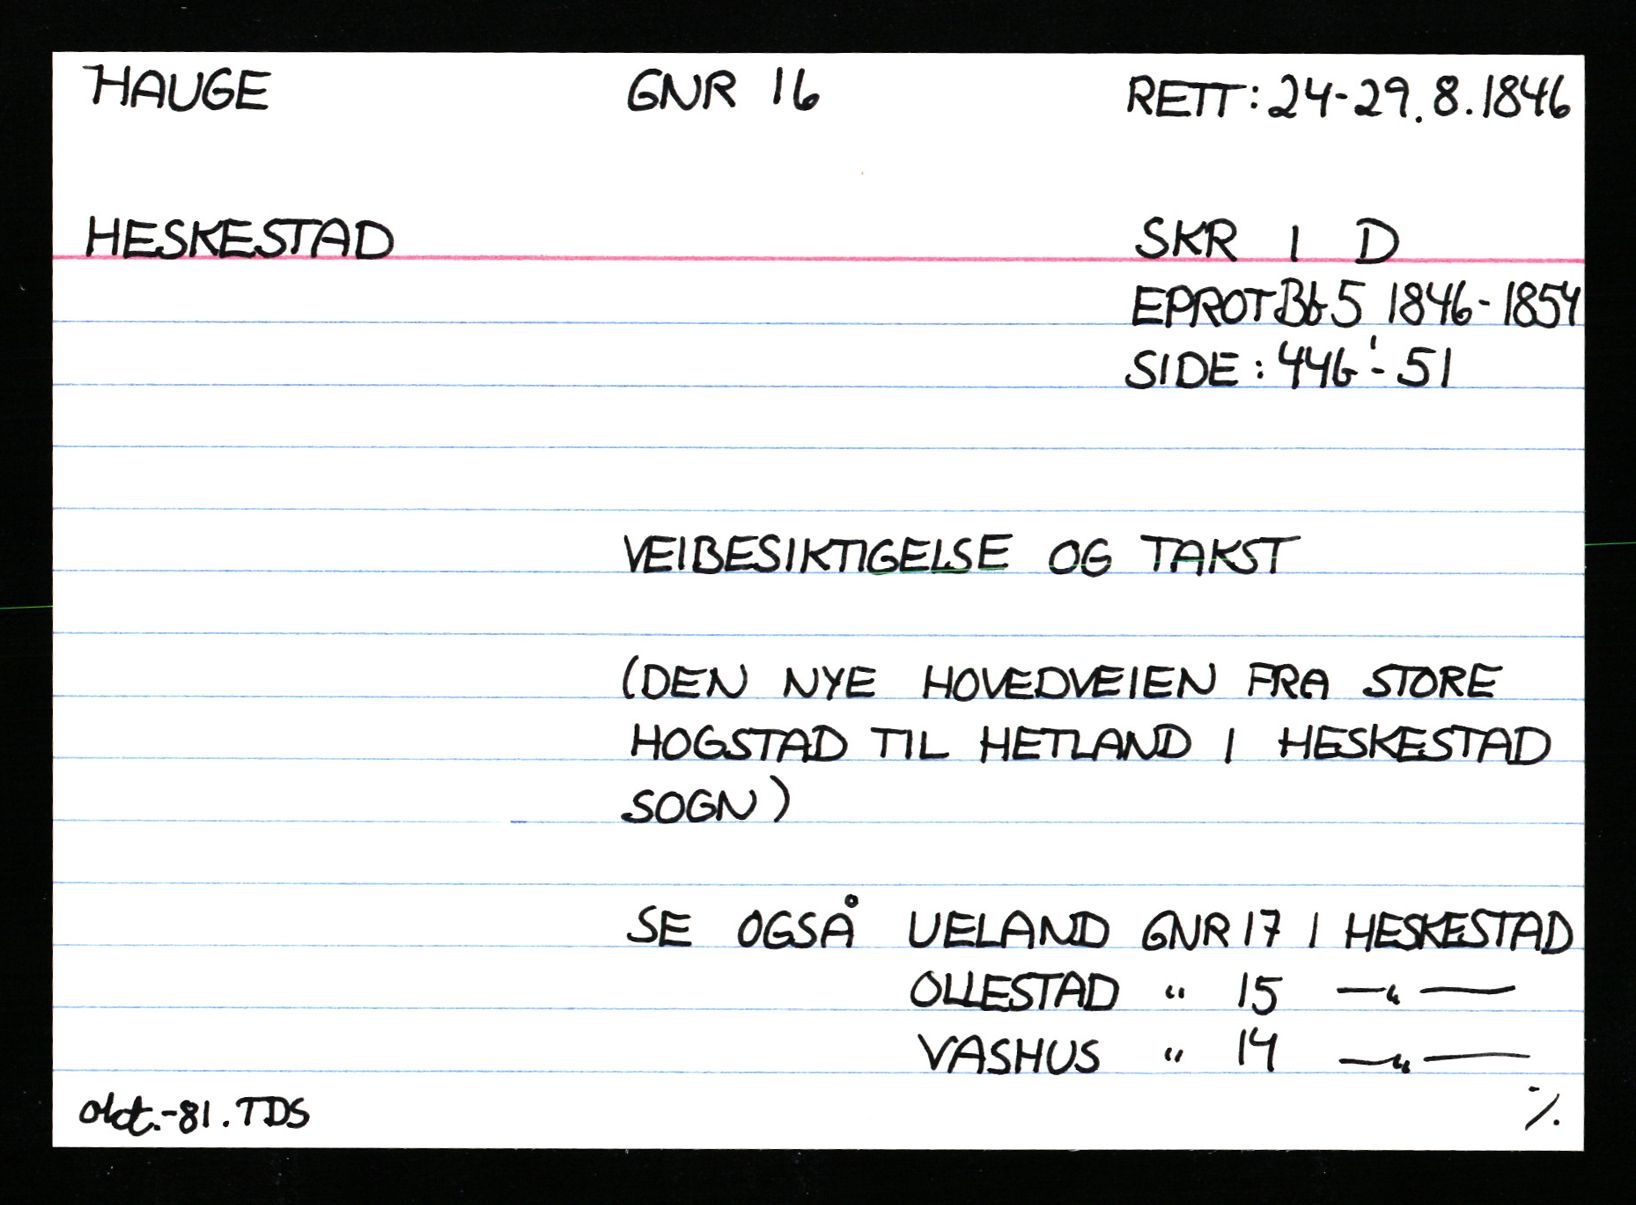 HAUGE GNR 16 RETT: 24-29.8.1846
HESKESTAD SKR I D
EPROT Bb 5 1846-1854
SIDE: 446'-51
VEIBESIKTIGELSE OG TAKST
(DEN NYE HOVEDVEIEN FRA STORE
HOGSTAD TIL HETLAND I HESKESTAD
SOGN)
SE OGSÅ UELAND GNR 17 I HESKESTAD
OLLESTAD " 15 —"—
VASHUS " 14 —"—
okt.-81. TDS ·/.